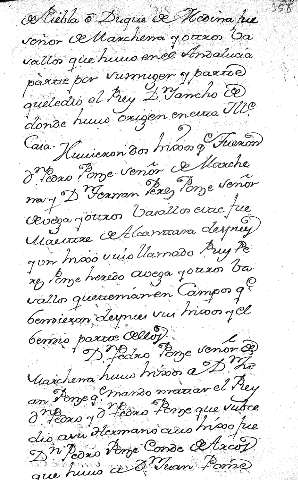 368
de Niebla o Duque de Medina fue
señor de Marchena y otros ba
sallos que huuo en el Andalucia
parte por su muger y parte
que le dio el Rey Dn Sancho de
donde huuo origen en esta Ille
Casa. Huuieron dos hixos qe fueron
Dn Pedro Ponze señor de Marche
na y Dn Fernan Perez Ponze señor
de vega y otros basallos este fue
Maestre de Alcantara despues
y un hixo suio llamado Ruy Pe
rez Ponze heredo a vega y otros ba
sallos que tenian en Campos qe
bendieron despues sus hixos y el
bendio parte de ellos
Dn Pedro Ponze señor de
Marchena huuo hixos a Dn Ju
an Ponze qe mando matar el Rey
Dn Pedro y Dn Pedro Ponze que subce
dio a su Hermano cuio hixo fue
Dn Pedro Ponze Conde de Arcos
que huuo a Dn Juan Ponze